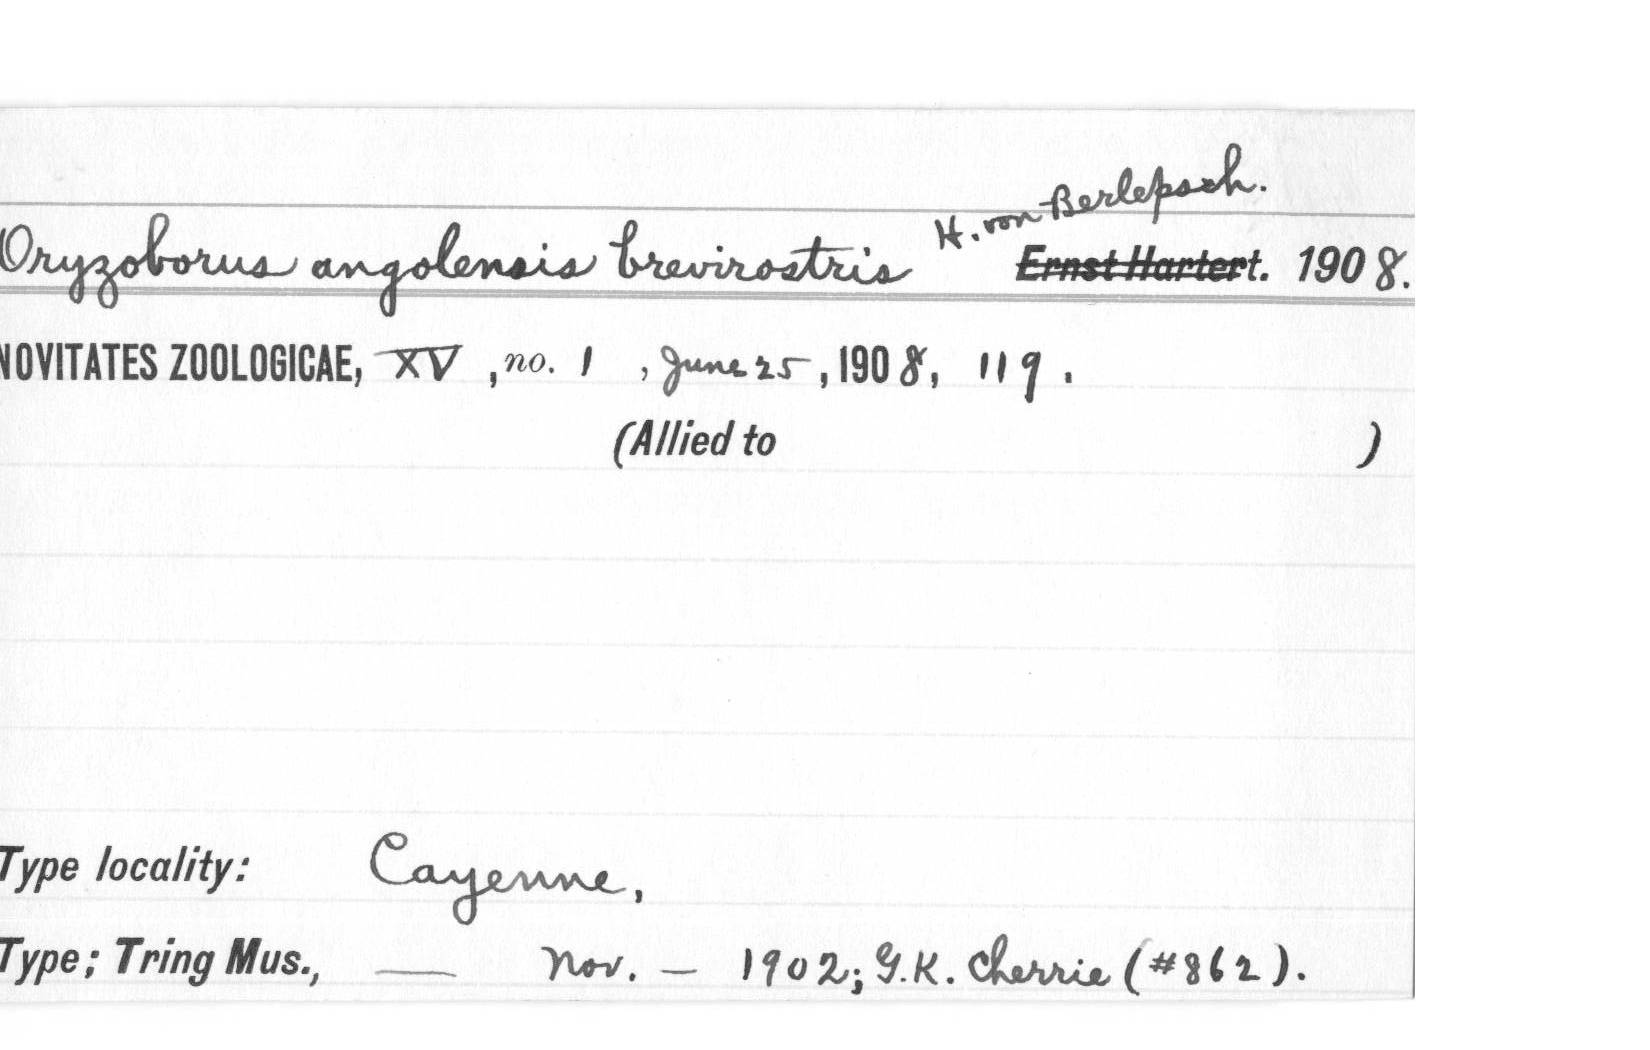 H. von Berlepsch.
Oryzoborus angolensis brevirostris Ernst Hartert. 1908.
NOVITATES ZOOLOGICAE, XV, no. 1, June 25, 1908, 119.
(Allied to )
Type locality: Cayenne,
Type; Tring Mus., — Nov. — 1902; G.K. Cherrie (#862).